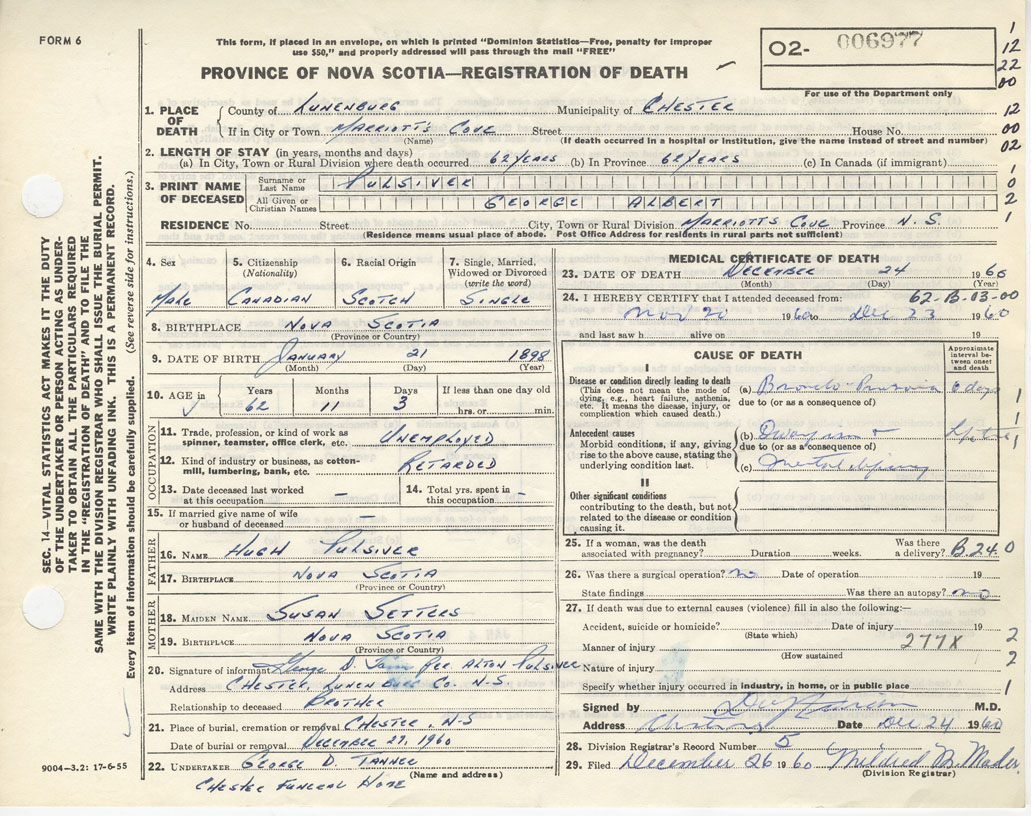 FORM 6
This form, if placed in an envelope, on which is printed "Dominion Statistics—Free, penalty for improper
use $50," and properly addressed will pass through the mail "FREE"
PROVINCE OF NOVA SCOTIA—REGISTRATION OF DEATH
O2- 006977
For use of the Department only
1
12
22
00
12
00
02
1
0
2
1
1. PLACE OF DEATH
County of LUNENBURG Municipality of CHESTER
If in City or Town MARRIOTT'S COVE Street House No.
(Name) (If death occurred in a hospital or institution, give the name instead of street and number)
2. LENGTH OF STAY (in years, months and days)
(a) In City, Town or Rural Division where death occurred 62 YEARS (b) In Province 62 YEARS (c) In Canada (if immigrant)
3. PRINT NAME OF DECEASED
Surname or Last Name PULSIVER
All Given or Christian Names GEORGE ALBERT
RESIDENCE No. Street City, Town or Rural Division MARRIOTT'S COVE Province N.S.
(Residence means usual place of abode. Post Office Address for residents in rural parts not sufficient)
SEC. 14—VITAL STATISTICS ACT MAKES IT THE DUTY
OF THE UNDERTAKER OR PERSON ACTING AS UNDER-
TAKER TO OBTAIN ALL THE PARTICULARS REQUIRED
IN THE "REGISTRATION OF DEATH" AND TO FILE THE
SAME WITH THE DIVISION REGISTRAR WHO SHALL ISSUE THE BURIAL PERMIT.
WRITE PLAINLY WITH UNFADING INK. THIS IS A PERMANENT RECORD.
Every item of information should be carefully supplied. (See reverse side for instructions.)
4. Sex
MALE
5. Citizenship
(Nationality)
CANADIAN
6. Racial Origin
SCOTCH
7. Single, Married,
Widowed or Divorced
(write the word)
SINGLE
8. BIRTHPLACE NOVA SCOTIA
(Province or Country)
9. DATE OF BIRTH JANUARY 21 1898
(Month) (Day) (Year)
10. AGE in
Years Months Days If less than one day old
62 11 3 hrs. or min.
OCCUPATION
11. Trade, profession, or kind of work as
spinner, teamster, office clerk, etc. UNEMPLOYED
12. Kind of industry or business, as cotton-
mill, lumbering, bank, etc. RETARDED
13. Date deceased last worked
at this occupation –
14. Total yrs. spent in
this occupation –
15. If married give name of wife
or husband of deceased –
FATHER
16. NAME HUGH PULSIVER
17. BIRTHPLACE NOVA SCOTIA
(Province or Country)
MOTHER
18. MAIDEN NAME SUSAN SETTLES
19. BIRTHPLACE NOVA SCOTIA
(Province or Country)
20. Signature of informant George D. PER ALTON PULSIVER
Address CHESTER, LUNENBURG CO. N.S.
Relationship to deceased BROTHER
21. Place of burial, cremation or removal CHESTER, N-S
Date of burial or removal DECEMBER 27, 1960
22. UNDERTAKER GEORGE D. TANNER
(Name and address)
CHESTER FUNERAL HOME
9004-3.2: 17-6-55
MEDICAL CERTIFICATE OF DEATH
23. DATE OF DEATH DECEMBER 24 1960
(Month) (Day) (Year)
24. I HEREBY CERTIFY that I attended deceased from: 62-B-03-00
Nov 20 1960 to Dec 23 1960
and last saw h alive on 19
CAUSE OF DEATH
Approximate
interval be-
tween onset
and death
I
Disease or condition directly leading to death
(This does not mean the mode of
dying, e.g., heart failure, asthenia,
etc. It means the disease, injury, or
complication which caused death.)
(a) Broncho-Pneumonia 6 days
due to (or as a consequence of)
Antecedent causes
Morbid conditions, if any, giving
rise to the above cause, stating the
underlying condition last.
(b)
due to (or as a consequence of)
(c) Mental
II
Other significant conditions
contributing to the death, but not
related to the disease or condition
causing it.
1
1
1
25. If a woman, was the death
associated with pregnancy? Duration weeks. Was there
a delivery? B.24.0
26. Was there a surgical operation? no Date of operation 19
State findings Was there an autopsy? no
27. If death was due to external causes (violence) fill in also the following:—
Accident, suicide or homicide? Date of injury 19
(State which)
2
Manner of injury 277X
(How sustained)
2
Nature of injury
Specify whether injury occurred in industry, in home, or in public place 1
Signed by M.D.
Address Date Dec 24 1960
28. Division Registrar's Record Number 5
29. Filed December 26 1960 Mildred B. Mader
(Division Registrar)